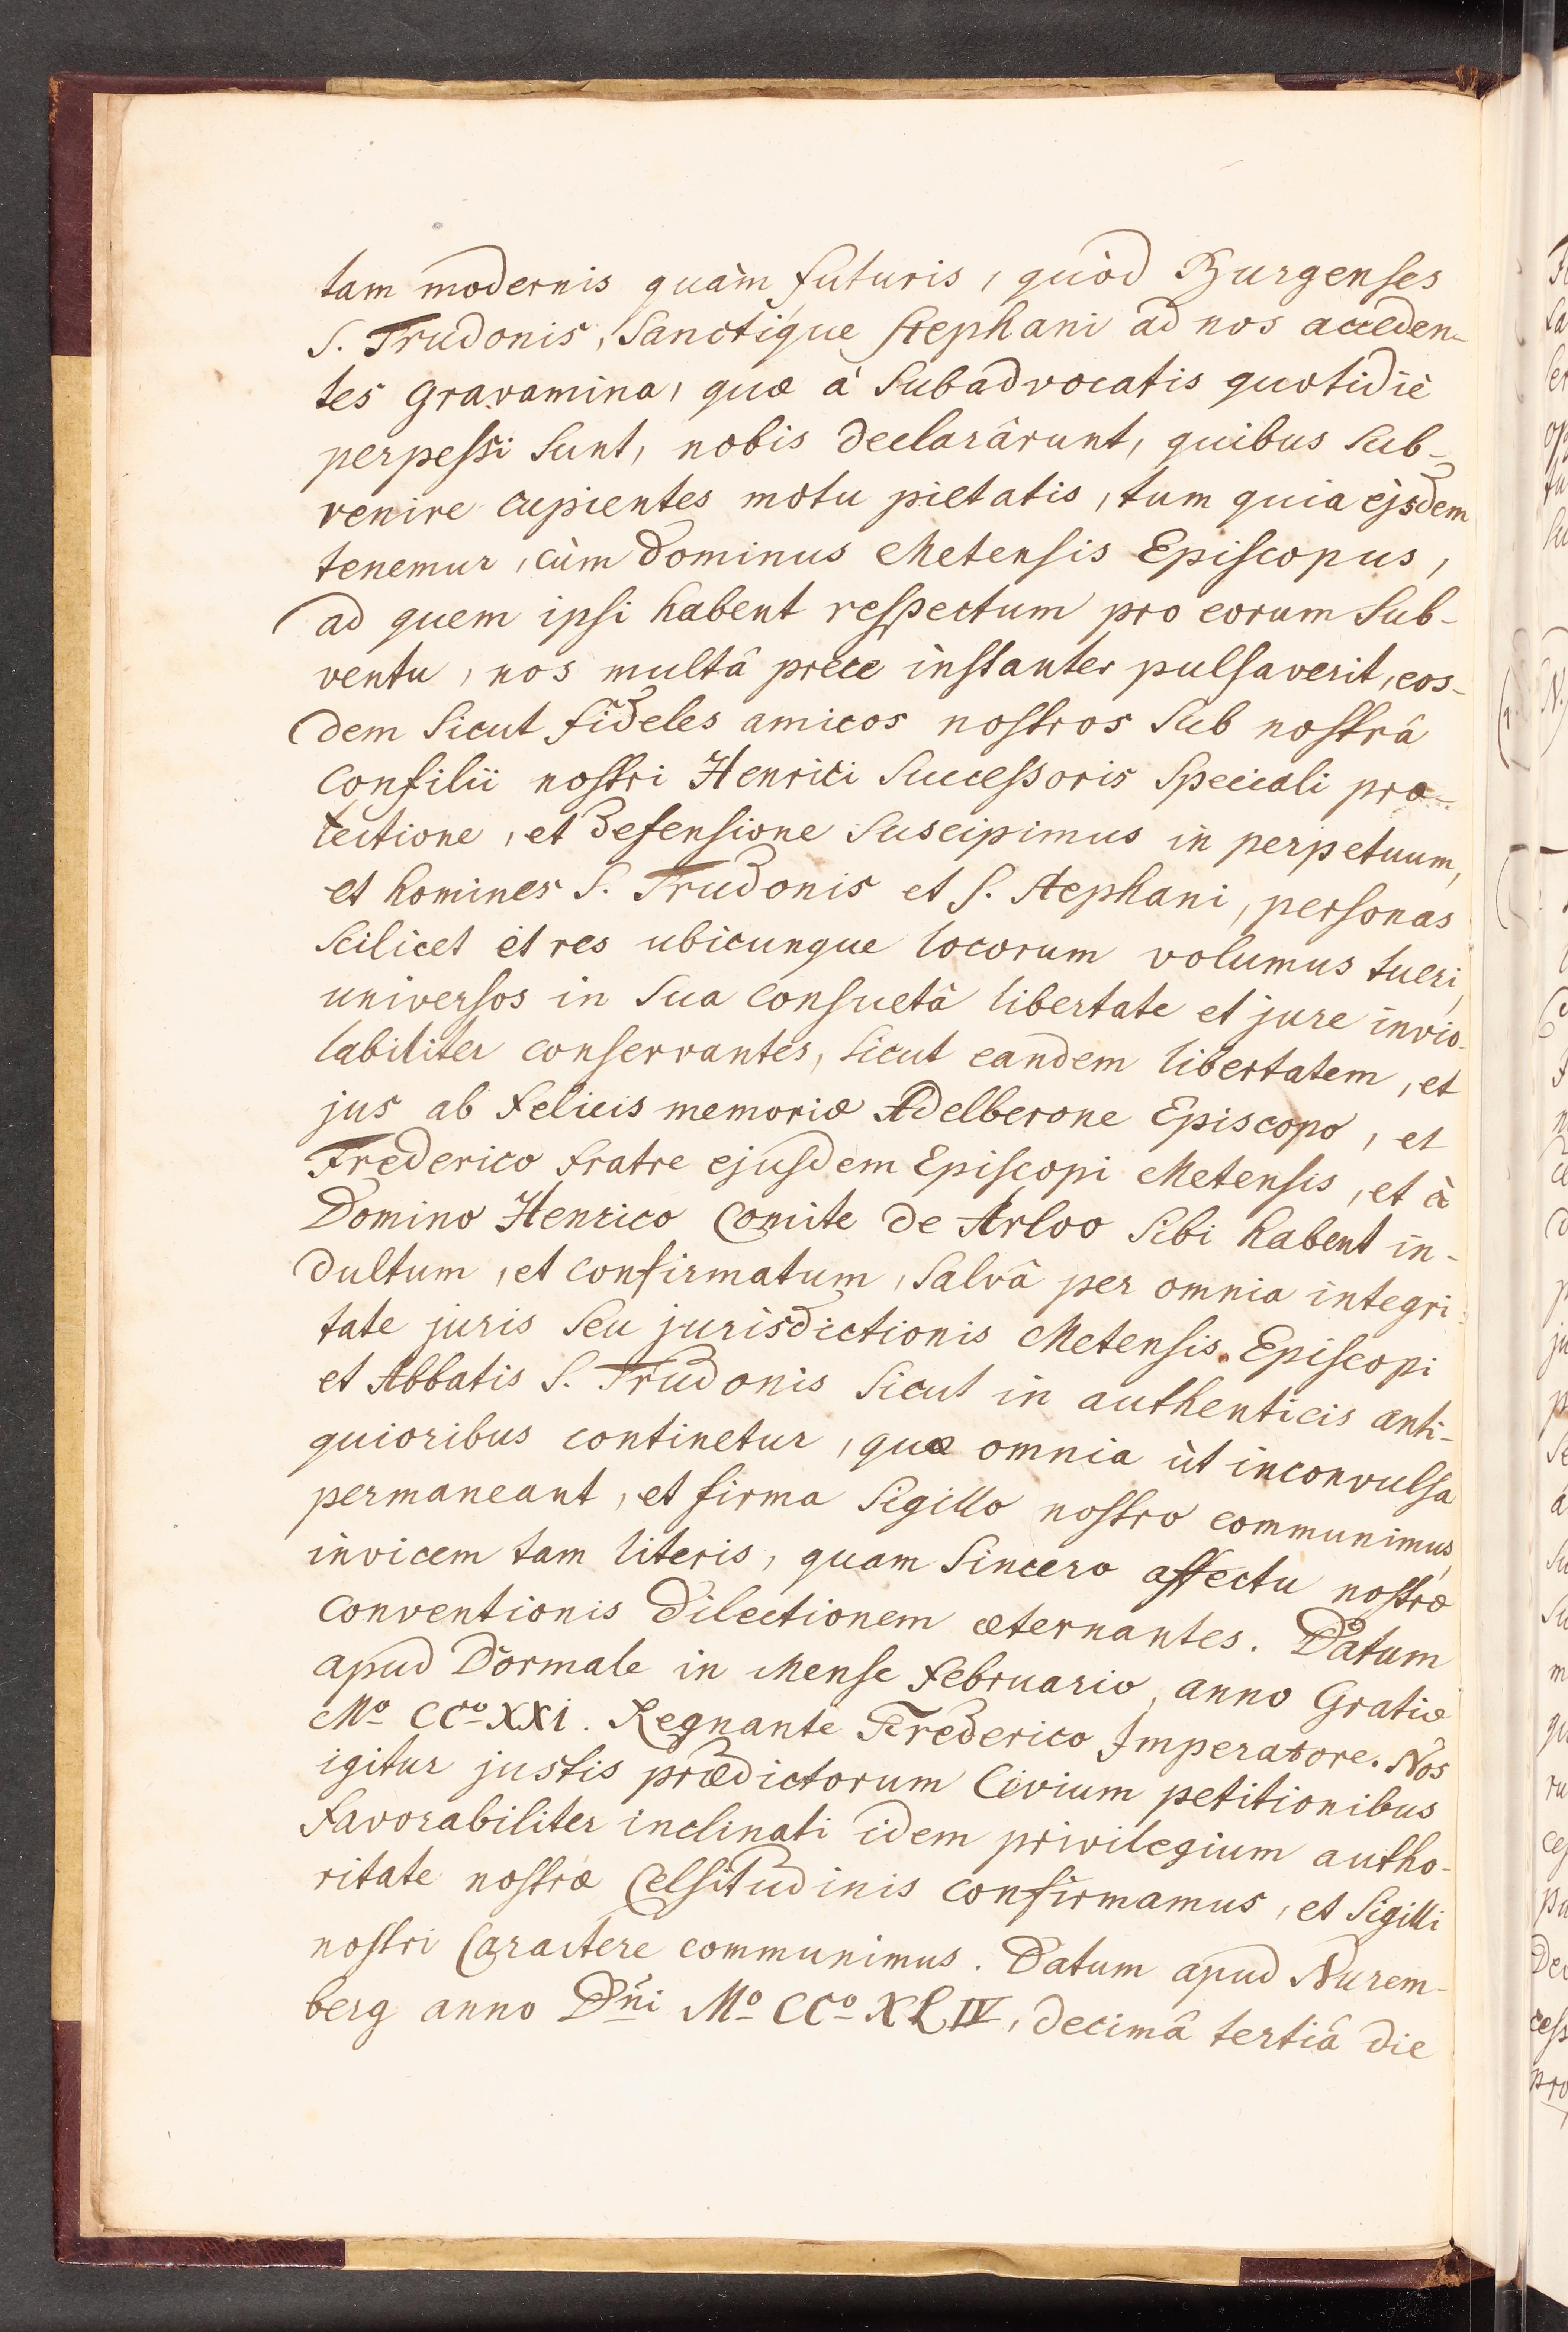 tam modernis quàm futuris, quòd Burgenses
S. Trudonis, Sanctique Stephani ad nos acceden-
tes gravamina, quæ à Subadvocatis quotidiè
perpessi sunt, nobis declarârunt, quibus sub-
venire cupientes motu pietatis, tum quia ejsdem
tenemur, cùm Dominus Metensis Episcopus,
ad quem ipsi habent respectum pro eorum sub-
ventu, nos multâ prece instanter pulsaverit, eos-
dem sicut fideles amicos nostros sub nostrâ
confilii nostri Henrici Successoris speciali pro-
tectione, et defensione suscipimus in perpetuum,
et homines S. Trudonis et S. Stephani, personas
scilicet et res ubicunque locorum volumus tueri,
universos in sua consuetâ libertate et jure invio-
labiliter conservantes, sicut eandem libertatem, et
jus ab felicis memoriæ Adelberone Episcopo, et
Frederico fratre ejusdem Episcopi Metensis, et à
Domino Henrico Comite de Arloo sibi habent in-
dultum, et confirmatum, salvâ per omnia integri-
tate juris seu jurisdictionis Metensis Episcopi
et Abbatis S. Trudonis sicut in authenticis anti-
quioribus continetur, quæ omnia ùt inconvulsa
permaneant, et firma sigillo nostro communimus,
invicem tam literis, quam sincero affectu nostræ
conventionis dilectionem æternantes. Datum
apud Dormale in Mense Februario, anno Gratiæ
Mº CCº XXI. Regnante Frederico Imperatore. Nos
igitur justis prædictorum Civium petitionibus
favorabiliter inclinati idem privilegium autho-
ritate nostræ Celsitudinis confirmamus, et sigilli
nostri Caractere communimus. Datum apud Nurem-
berg anno Dñi Mº CCº XLIV, decimâ tertiâ die